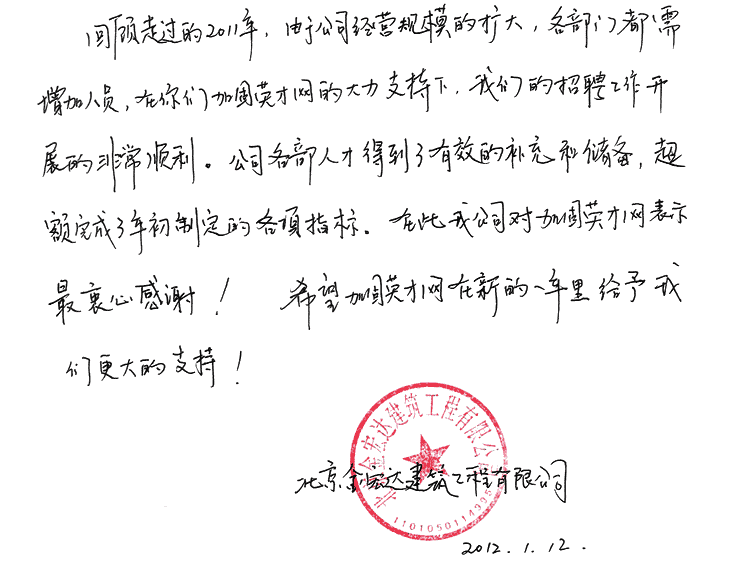 回顾走过的2011年，由于公司经营规模的扩大，各部门都需
增加人员，在你们加固英才网的大力支持下，我们的招聘工作开
展的非常顺利。公司各部人才得到了有效的补充和储备，超
额完成了年初制定的各项指标。在此我公司对加固英才网表示
最衷心感谢！ 希望加固英才网在新的一年里给予我
们更大的支持！
北京金宏达建筑工程有限公司
北京金宏达建筑工程有限公司
2012.1.12.